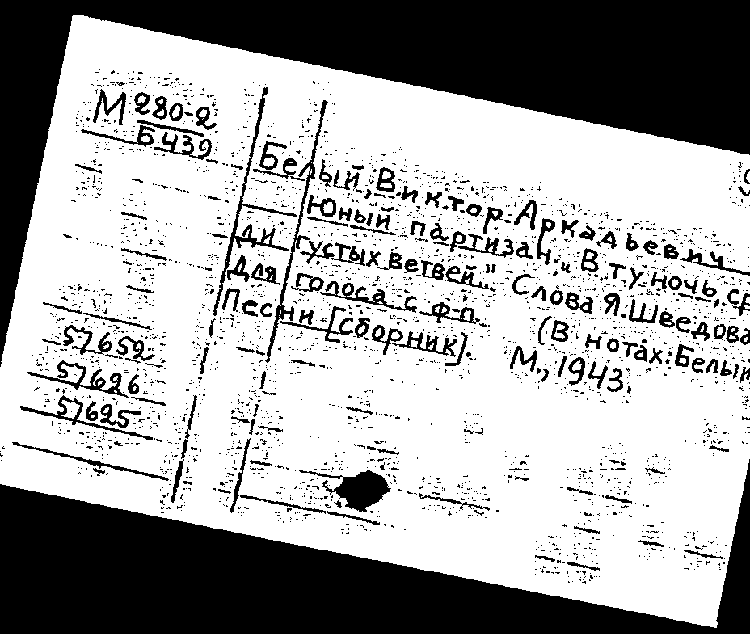 М 280-2
Б439
Белый, Виктор Аркадьевич
Юный партизан. „В ту ночь, ср
ди густых ветвей..." Слова Я.Шведова
Для голоса с ф-п. (В нотах: Белый
Песни [сборник]. М., 1943.
57652
57626
57625